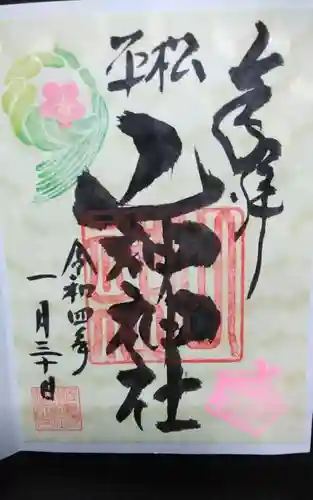 奉拝
平松
山神社
令和四年
一月三十日